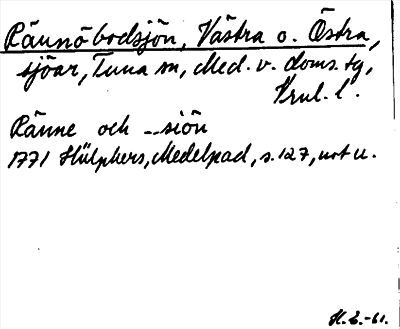 Rännöbodsjön, Västra o. Östra,
sjöar, Tuna sn, Med. v. doms. tg,
Vrnl. l.
Ränne och -- siön
1771 Hülphers, Medelpad, s. 127, not u.
H.L.-61.